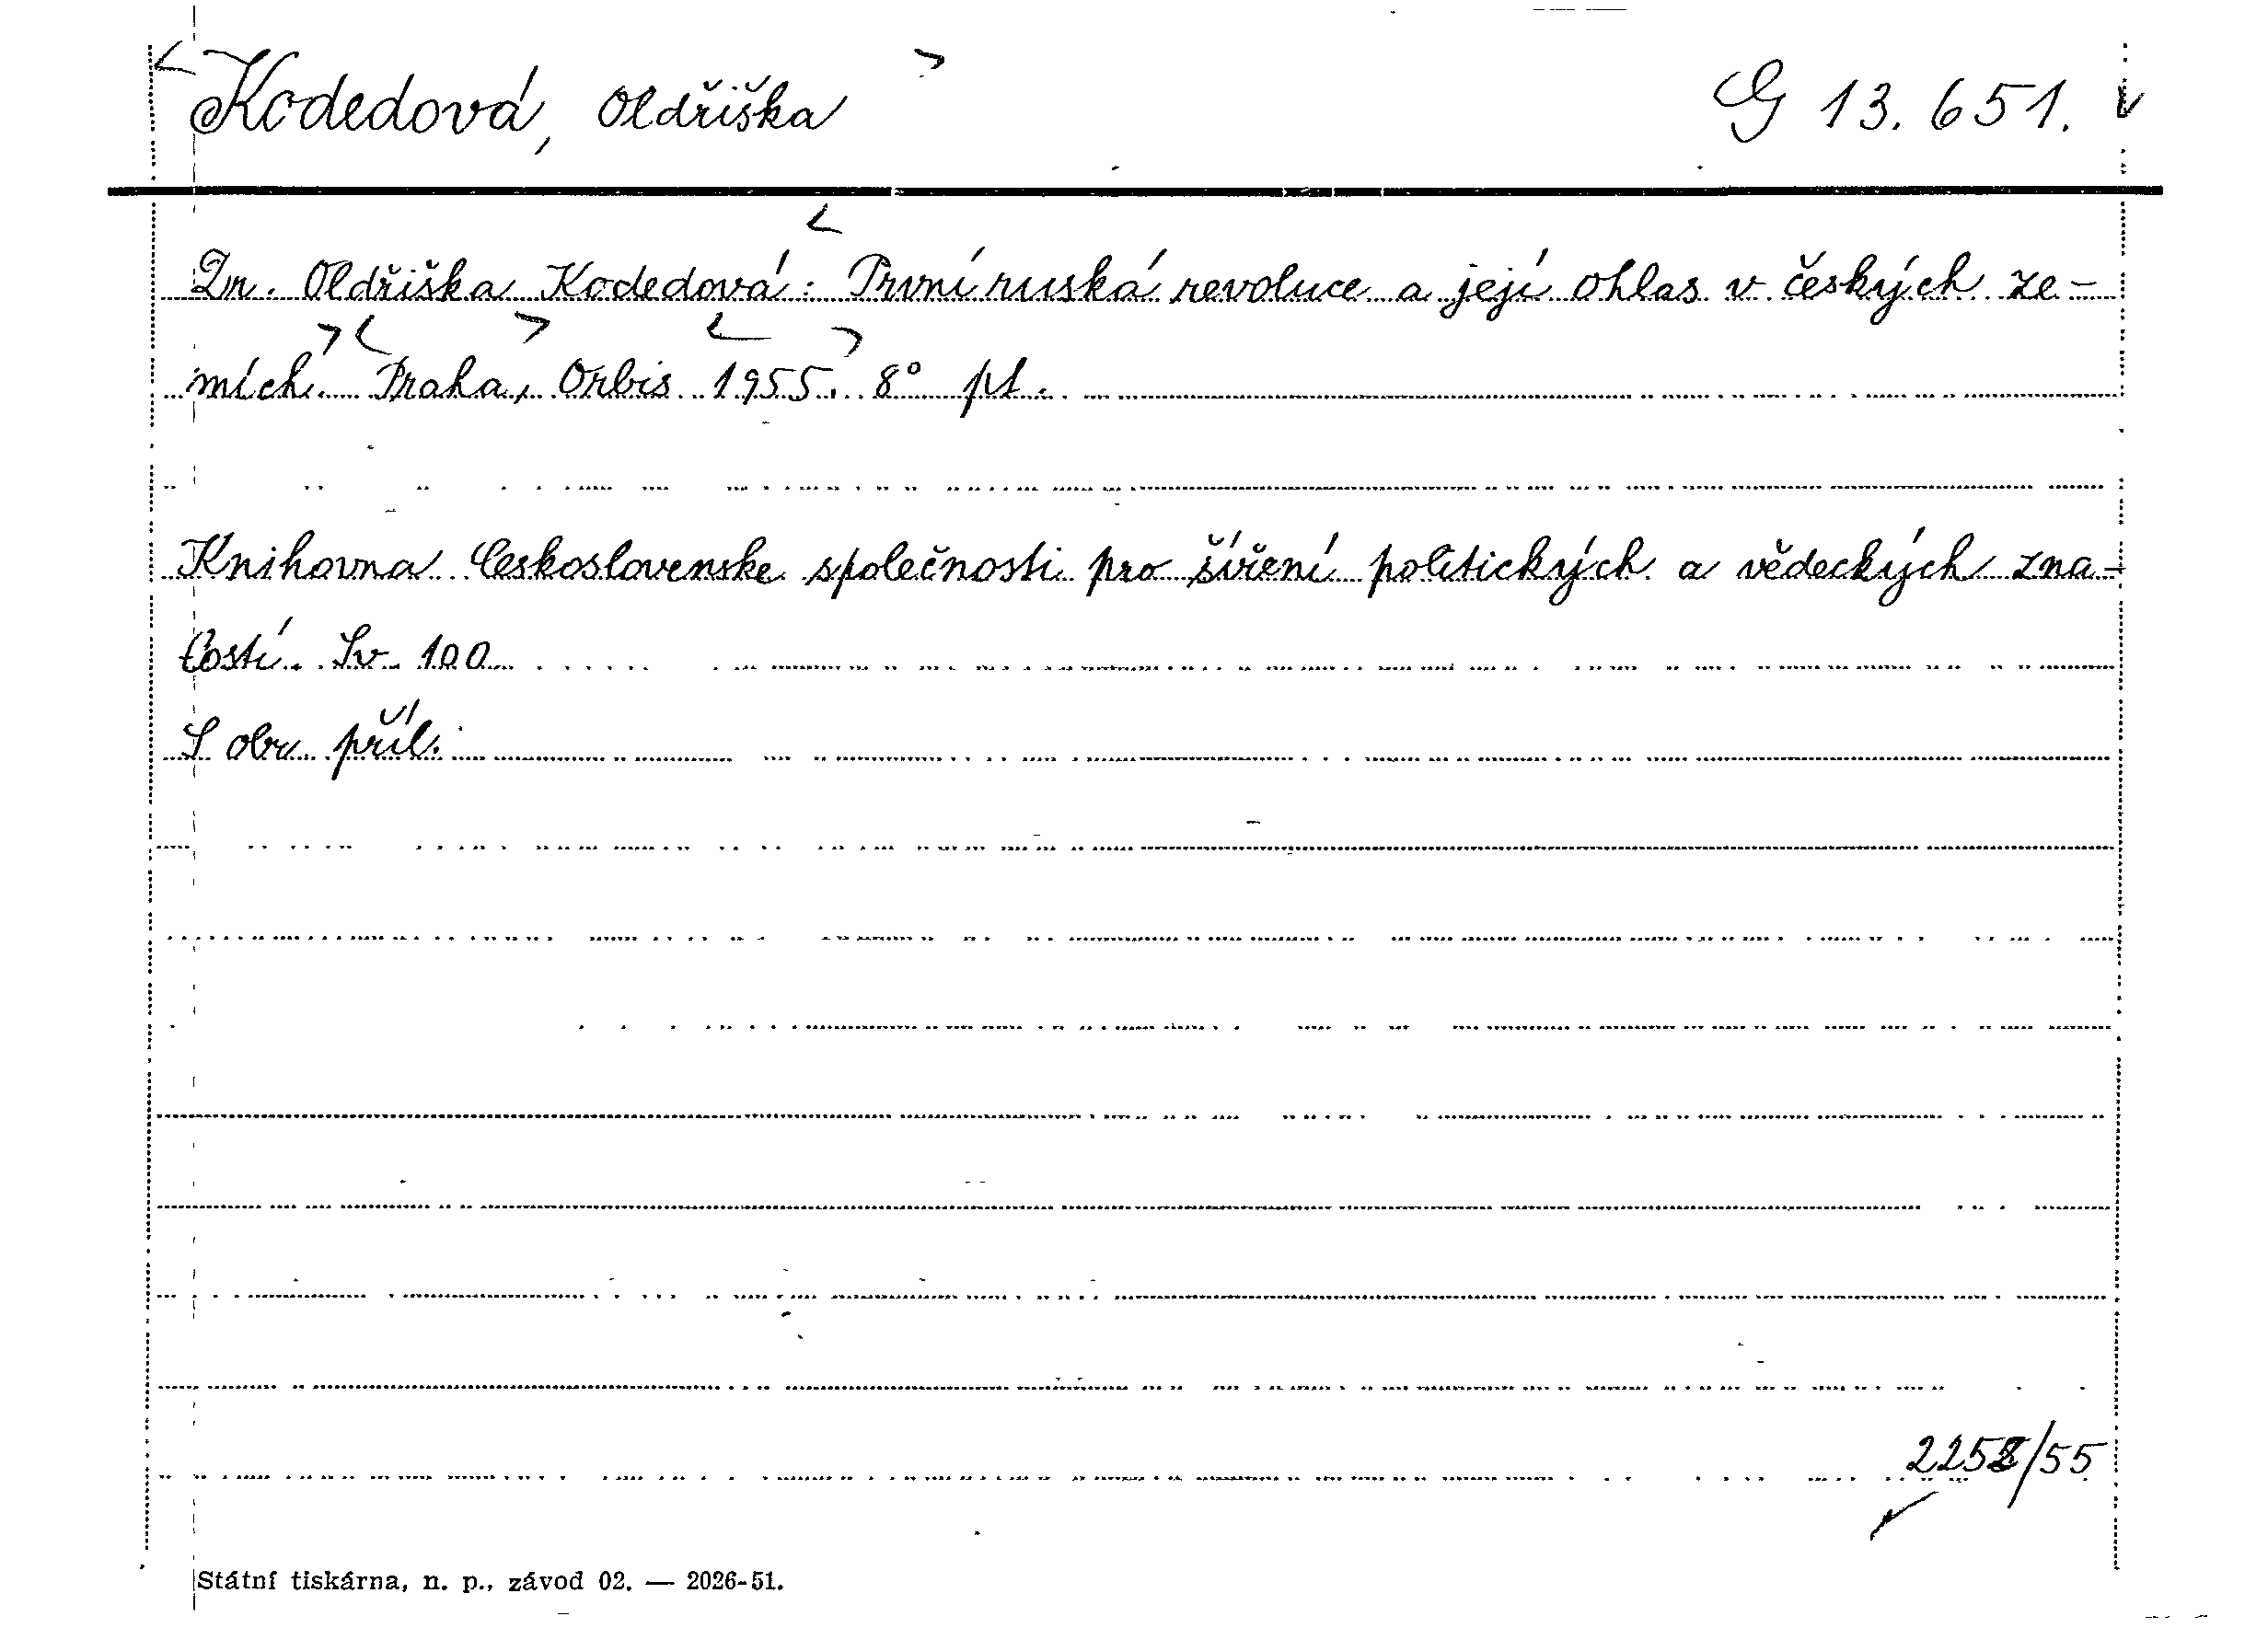 Kodedová, Oldřiška G 13.651.
Dr. Oldřiška Kodedová: První ruská revoluce a její ohlas v českých ze-
mích. Praha, Orbis 1955. 8° pl.
Knihovna Československe společnosti pro šíření politických a vědeckých zna-
lostí. Sv. 100
S obr. příl.
/55
Státní tiskárna, n. p., závod 02. — 2026-51.